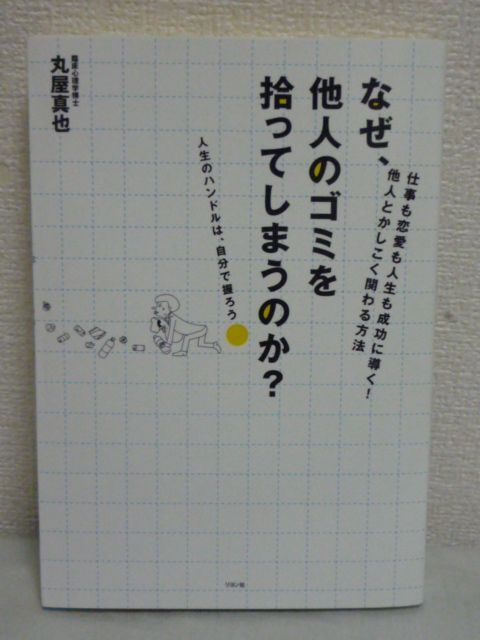 仕事も恋愛も人生も成功に導く！
他人とかしこく関わる方法
なぜ、
他人のゴミを
拾ってしまうのか？
人生のハンドルは、自分で握ろう
臨床心理学博士
丸屋真也
リヨン社